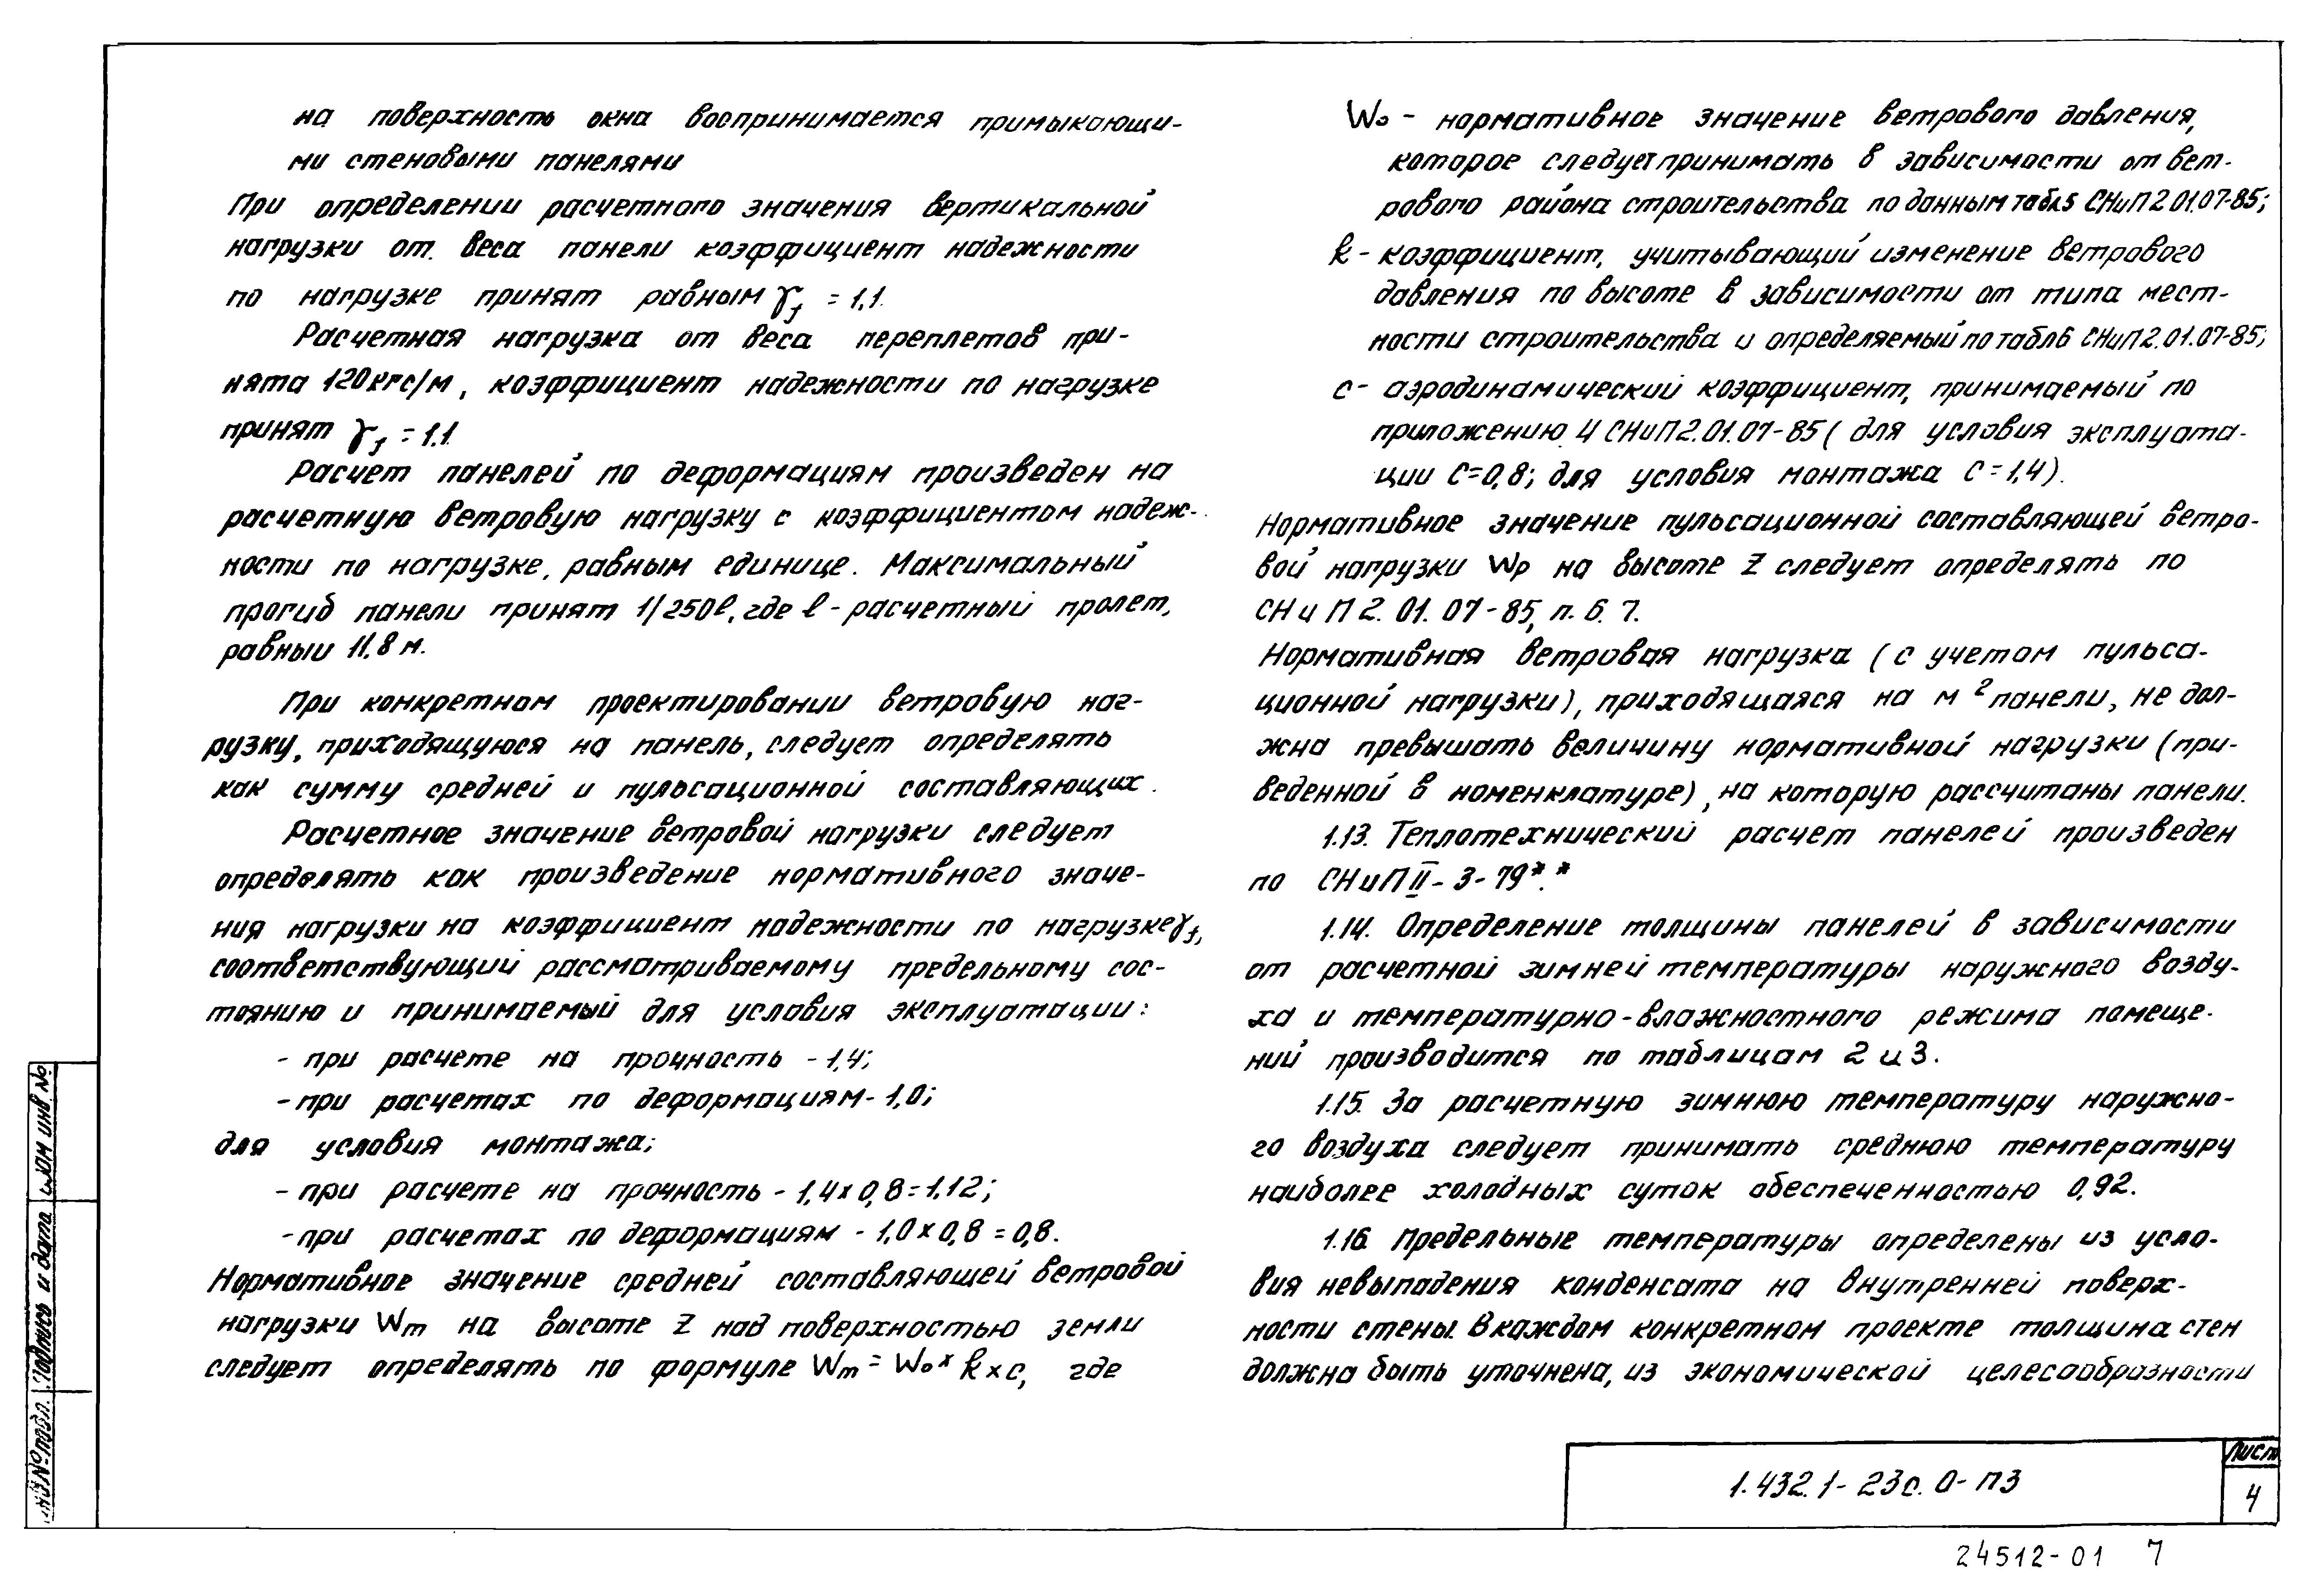 на поверхность окна воспринимается примыкающи-
ми стеновыми панелями
При определении расчетного значения вертикальной
нагрузки от веса панели коэффициент надежности
по нагрузке принят равным γf = 1,1.
Расчетная нагрузка от веса переплетов при-
нята 120кгс/м, коэффициент надежности по нагрузке
принят γf = 1.1.
Расчет панелей по деформациям произведен на
расчетную ветровую нагрузку с коэффициентом надеж-
ности по нагрузке, равным единице. Максимальный
прогиб панели принят 1/250ℓ, где ℓ - расчетный пролет,
равный 11,8 м.
При конкретном проектировании ветровую наг-
рузку, приходящуюся на панель, следует определять
как сумму средней и пульсационной составляющих.
Расчетное значение ветровой нагрузки следует
определять как произведение нормативного значе-
ния нагрузки на коэффициент надежности по нагрузке γf,
соответствующий рассматриваемому предельному сос-
тоянию и принимаемый для условия эксплуатации:
- при расчете на прочность - 1,4;
- при расчетах по деформациям - 1,0;
для условия монтажа;
- при расчете на прочность - 1,4 x 0,8 = 1,12;
- при расчетах по деформациям - 1,0 x 0,8 = 0,8.
Нормативное значение средней составляющей ветровой
нагрузки Wm на высоте Z над поверхностью земли
следует определять по формуле Wm = Wo x k x c, где
Wo - нормативное значение ветрового давления,
которое следует принимать в зависимости от вет-
рового района строительства по данным табл5 СНиП 2 01.07-85;
k - коэффициент, учитывающий изменение ветрового
давления по высоте в зависимости от типа мест-
ности строительства и определяемый по табл6 СНиП 2.01.07-85;
c - аэродинамический коэффициент, принимаемый по
приложению 4 СНиП 2.01.07-85 ( для условия эксплуата-
ции С=0,8; для условия монтажа С = 1,4).
Нормативное значение пульсационной составляющей ветро-
вой нагрузки Wp на высоте Z следует определять по
СНиП 2. 01. 07-85, п. 6. 7.
Нормативная ветровая нагрузка ( с учетом пульса-
ционной нагрузки), приходящаяся на м² панели, не дол-
жна превышать величину нормативной нагрузки (при-
веденной в номенклатуре), на которую рассчитаны панели.
1.13. Теплотехнический расчет панелей произведен
по СНиП II - 3 - 79**.
1.14. Определение толщины панелей в зависимости
от расчетной зимней температуры наружного возду-
ха и температурно-влажностного режима помеще-
ний производится по таблицам 2 и 3.
1.15. За расчетную зимнюю температуру наружно-
го воздуха следует принимать среднюю температуру
наиболее холодных суток обеспеченностью 0,92.
1.16. Предельные температуры определены из усло-
вия невыпадения конденсата на внутренней поверх-
ности стены. В каждом конкретном проекте толщина стен
должна быть уточнена, из экономической целесообразности
1.432.1-23с.0-ПЗ
Лист
4
24512-01 7
Взам инв. №
Подпись и дата
Инв № подл.